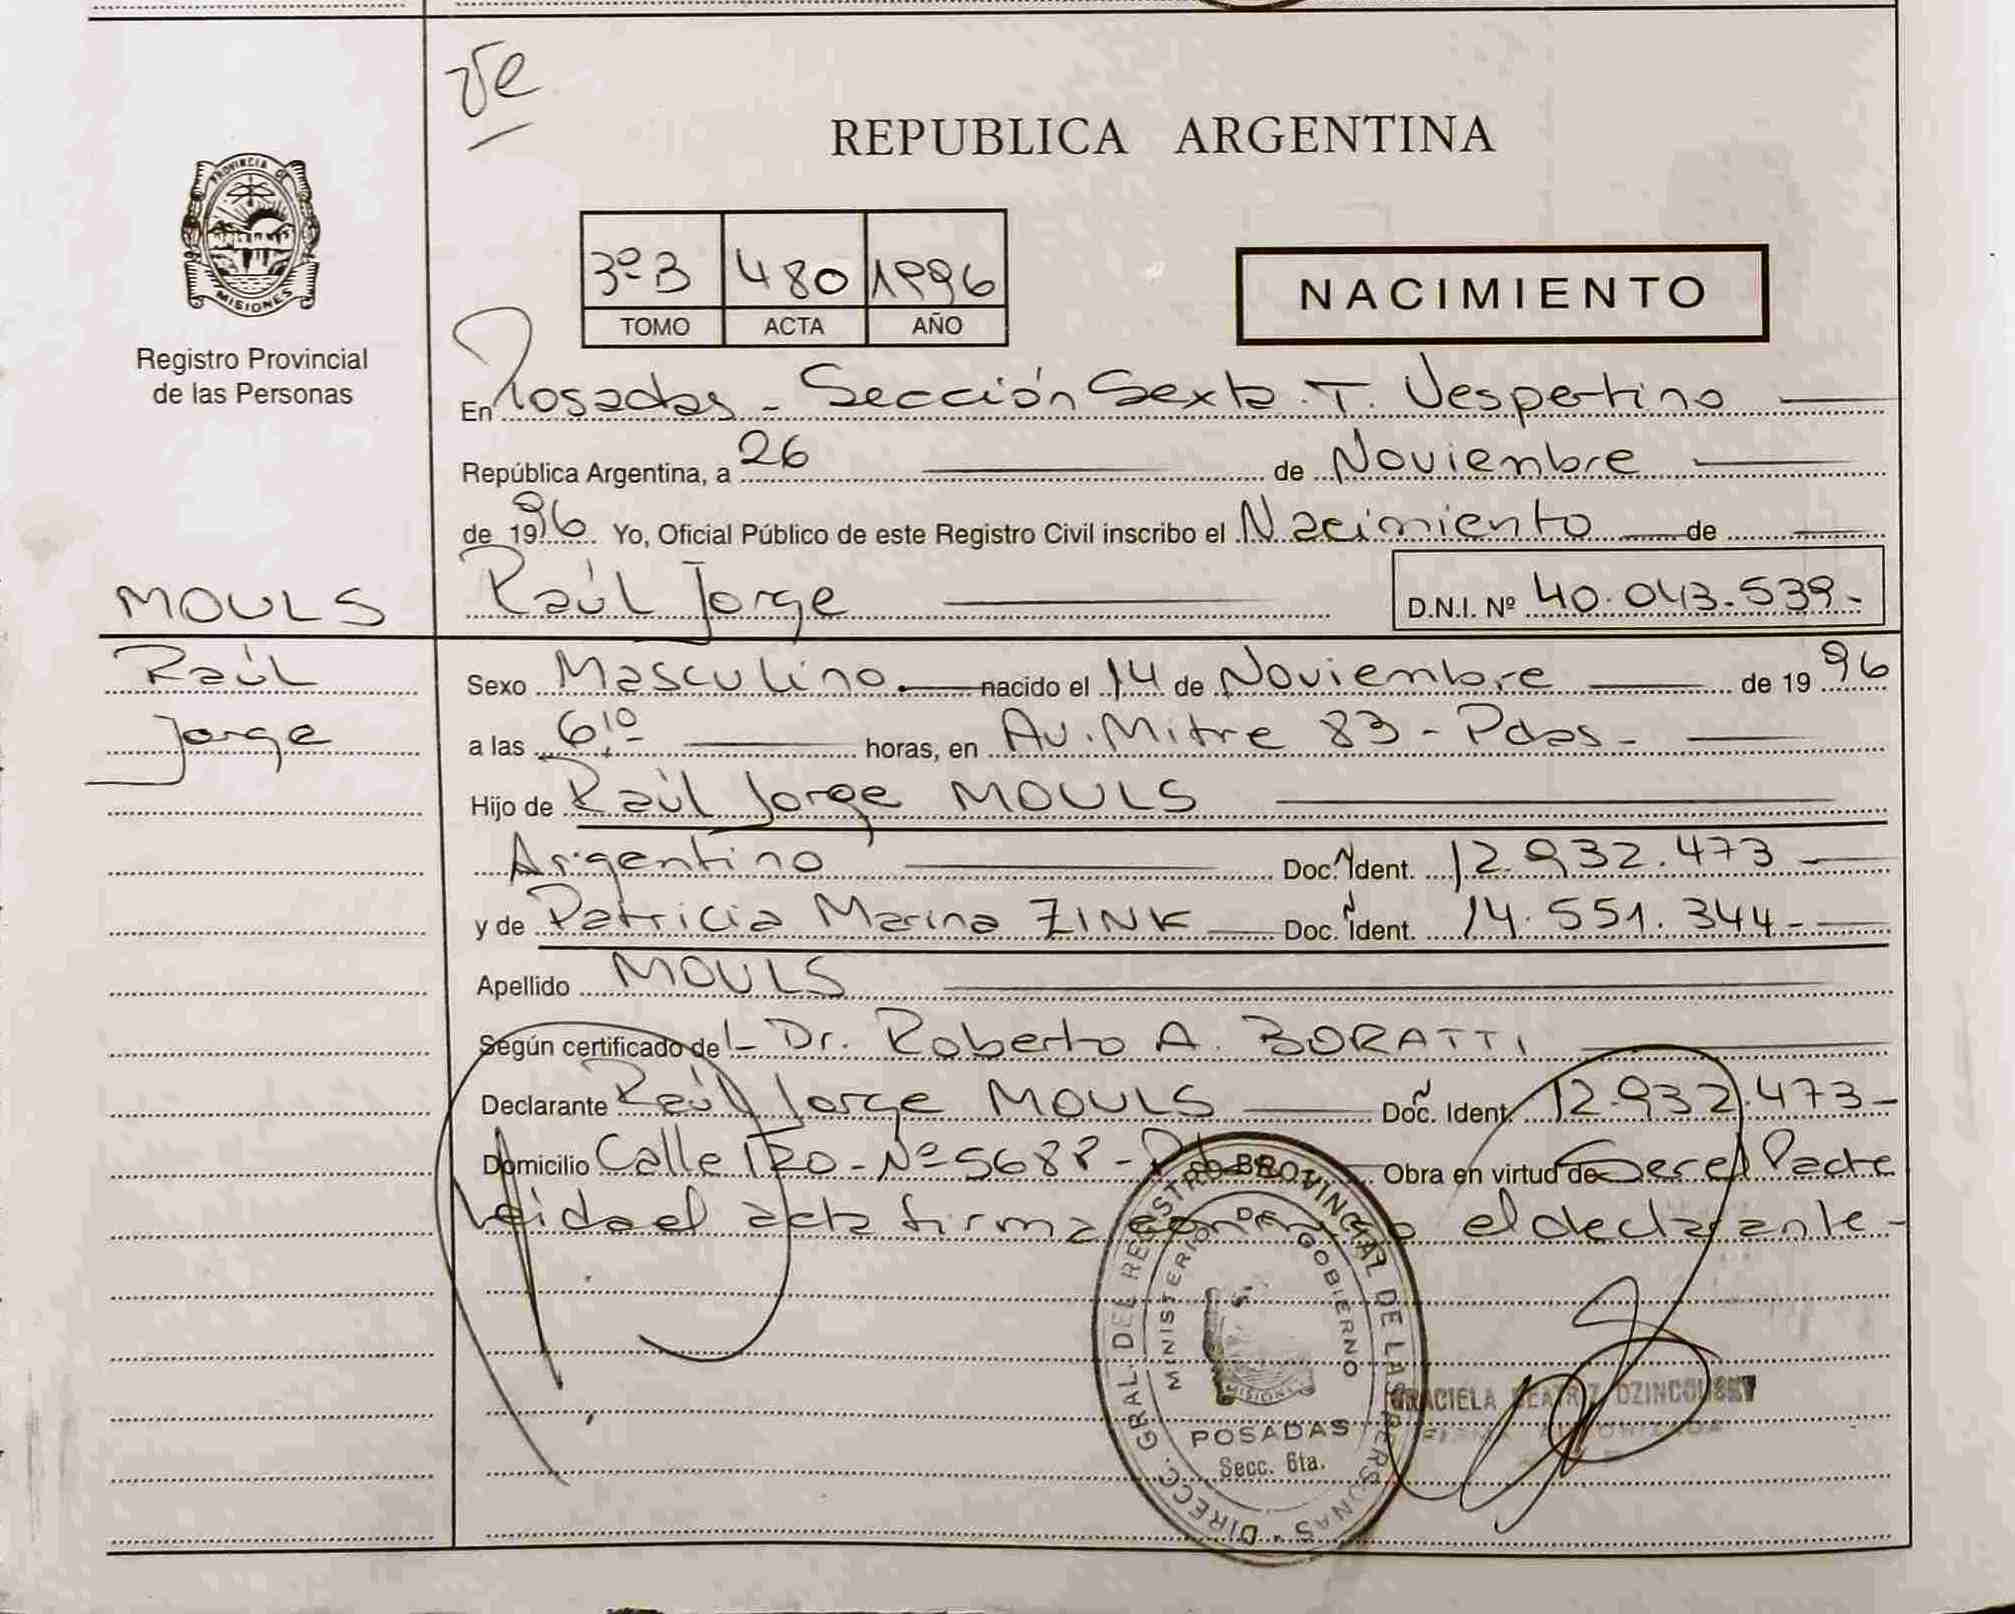 REPUBLICA ARGENTINA
PROVINCIA DE
MISIONES
Registro Provincial
de las Personas
3º B 480 1996
TOMO ACTA AÑO
NACIMIENTO
En Posadas - Sección Sexta. T. Vespertino
República Argentina, a 26 de Noviembre
de 1996 Yo, Oficial Público de este Registro Civil inscribo el Nacimiento de
MOULS
Raúl Jorge D.N.I. Nº 40.043.539.-
Raúl
Jorge
Sexo Masculino nacido el 14 de Noviembre de 1996
a las 6,10 horas, en Av. Mitre 83 - Pdas -
Hijo de Raúl Jorge MOULS
Argentino Doc. Ident. 12.932.473
y de Patricia Marina ZINK Doc. Ident. 14.551.344-
Apellido MOULS
Según certificado del Dr. Roberto A. BORATTI
Declarante Raúl Jorge MOULS Doc. Ident. 12.932.473-
Domicilio Calle 120 - Nº 5688 - Obra en virtud de Ser el Padre
Leida el acta firma el declarante-
DIRECC. GRAL. DEL REGISTRO PROVINCIAL DE LAS PERSONAS
MINISTERIO DE GOBIERNO
MISIONES
POSADAS
Secc. 6ta.
GRACIELA BEATRIZ DZINCOUSKY